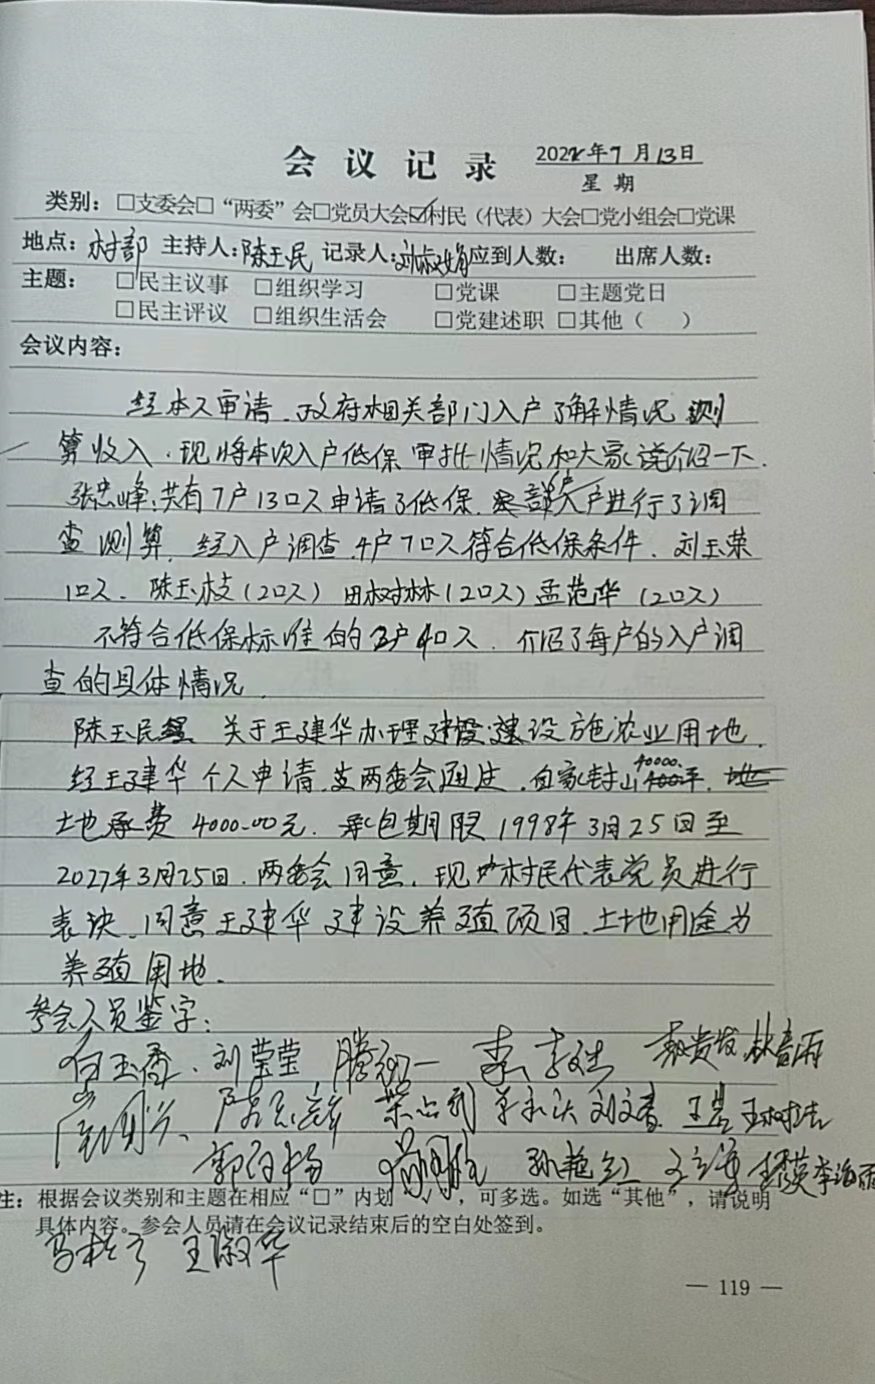 会议记录 2022年7月13日
星期
类别：□支委会□“两委”会□党员大会☑村民（代表）大会□党小组会□党课
地点：村部 主持人：陈玉民 记录人：刘淑娟 应到人数： 出席人数：
主题： □民主议事 □组织学习 □党课 □主题党日
□民主评议 □组织生活会 □党建述职 □其他（ ）
会议内容：
经本人申请、政府相关部门入户了解情况 测
算收入．现将本次入户低保审批情况和大家介绍一下．
张忠峰：共有7户13口人申请了低保．入户进行了调
查测算．经入户调查．4户7口人符合低保条件．刘玉荣
1口人．陈玉枝（2口人）田树林（2口人）孟范华（2口人）
不符合低保标准的3户4口人．介绍了每户的入户调
查的具体情况．
陈玉民 关于王建华办理建设设施农业用地．
经王建华个人申请．支两委会通过．自家 山 40000．
土地承费 4000.00元．承包期限1998年3月25日至
2027年3月25日．两委会同意．现 村民代表党员进行
表决．同意王建华建设养殖项目．土地用途为
养殖用地．
参会人员鉴字：
白玉香．刘莹莹
刘文春．王岩 王树志
孙艳红 李海雨
注：根据会议类别和主题在相应“□”内划 ，可多选。如选“其他”，请说明
具体内容。参会人员请在会议记录结束后的空白处签到。
王淑华
— 119 —